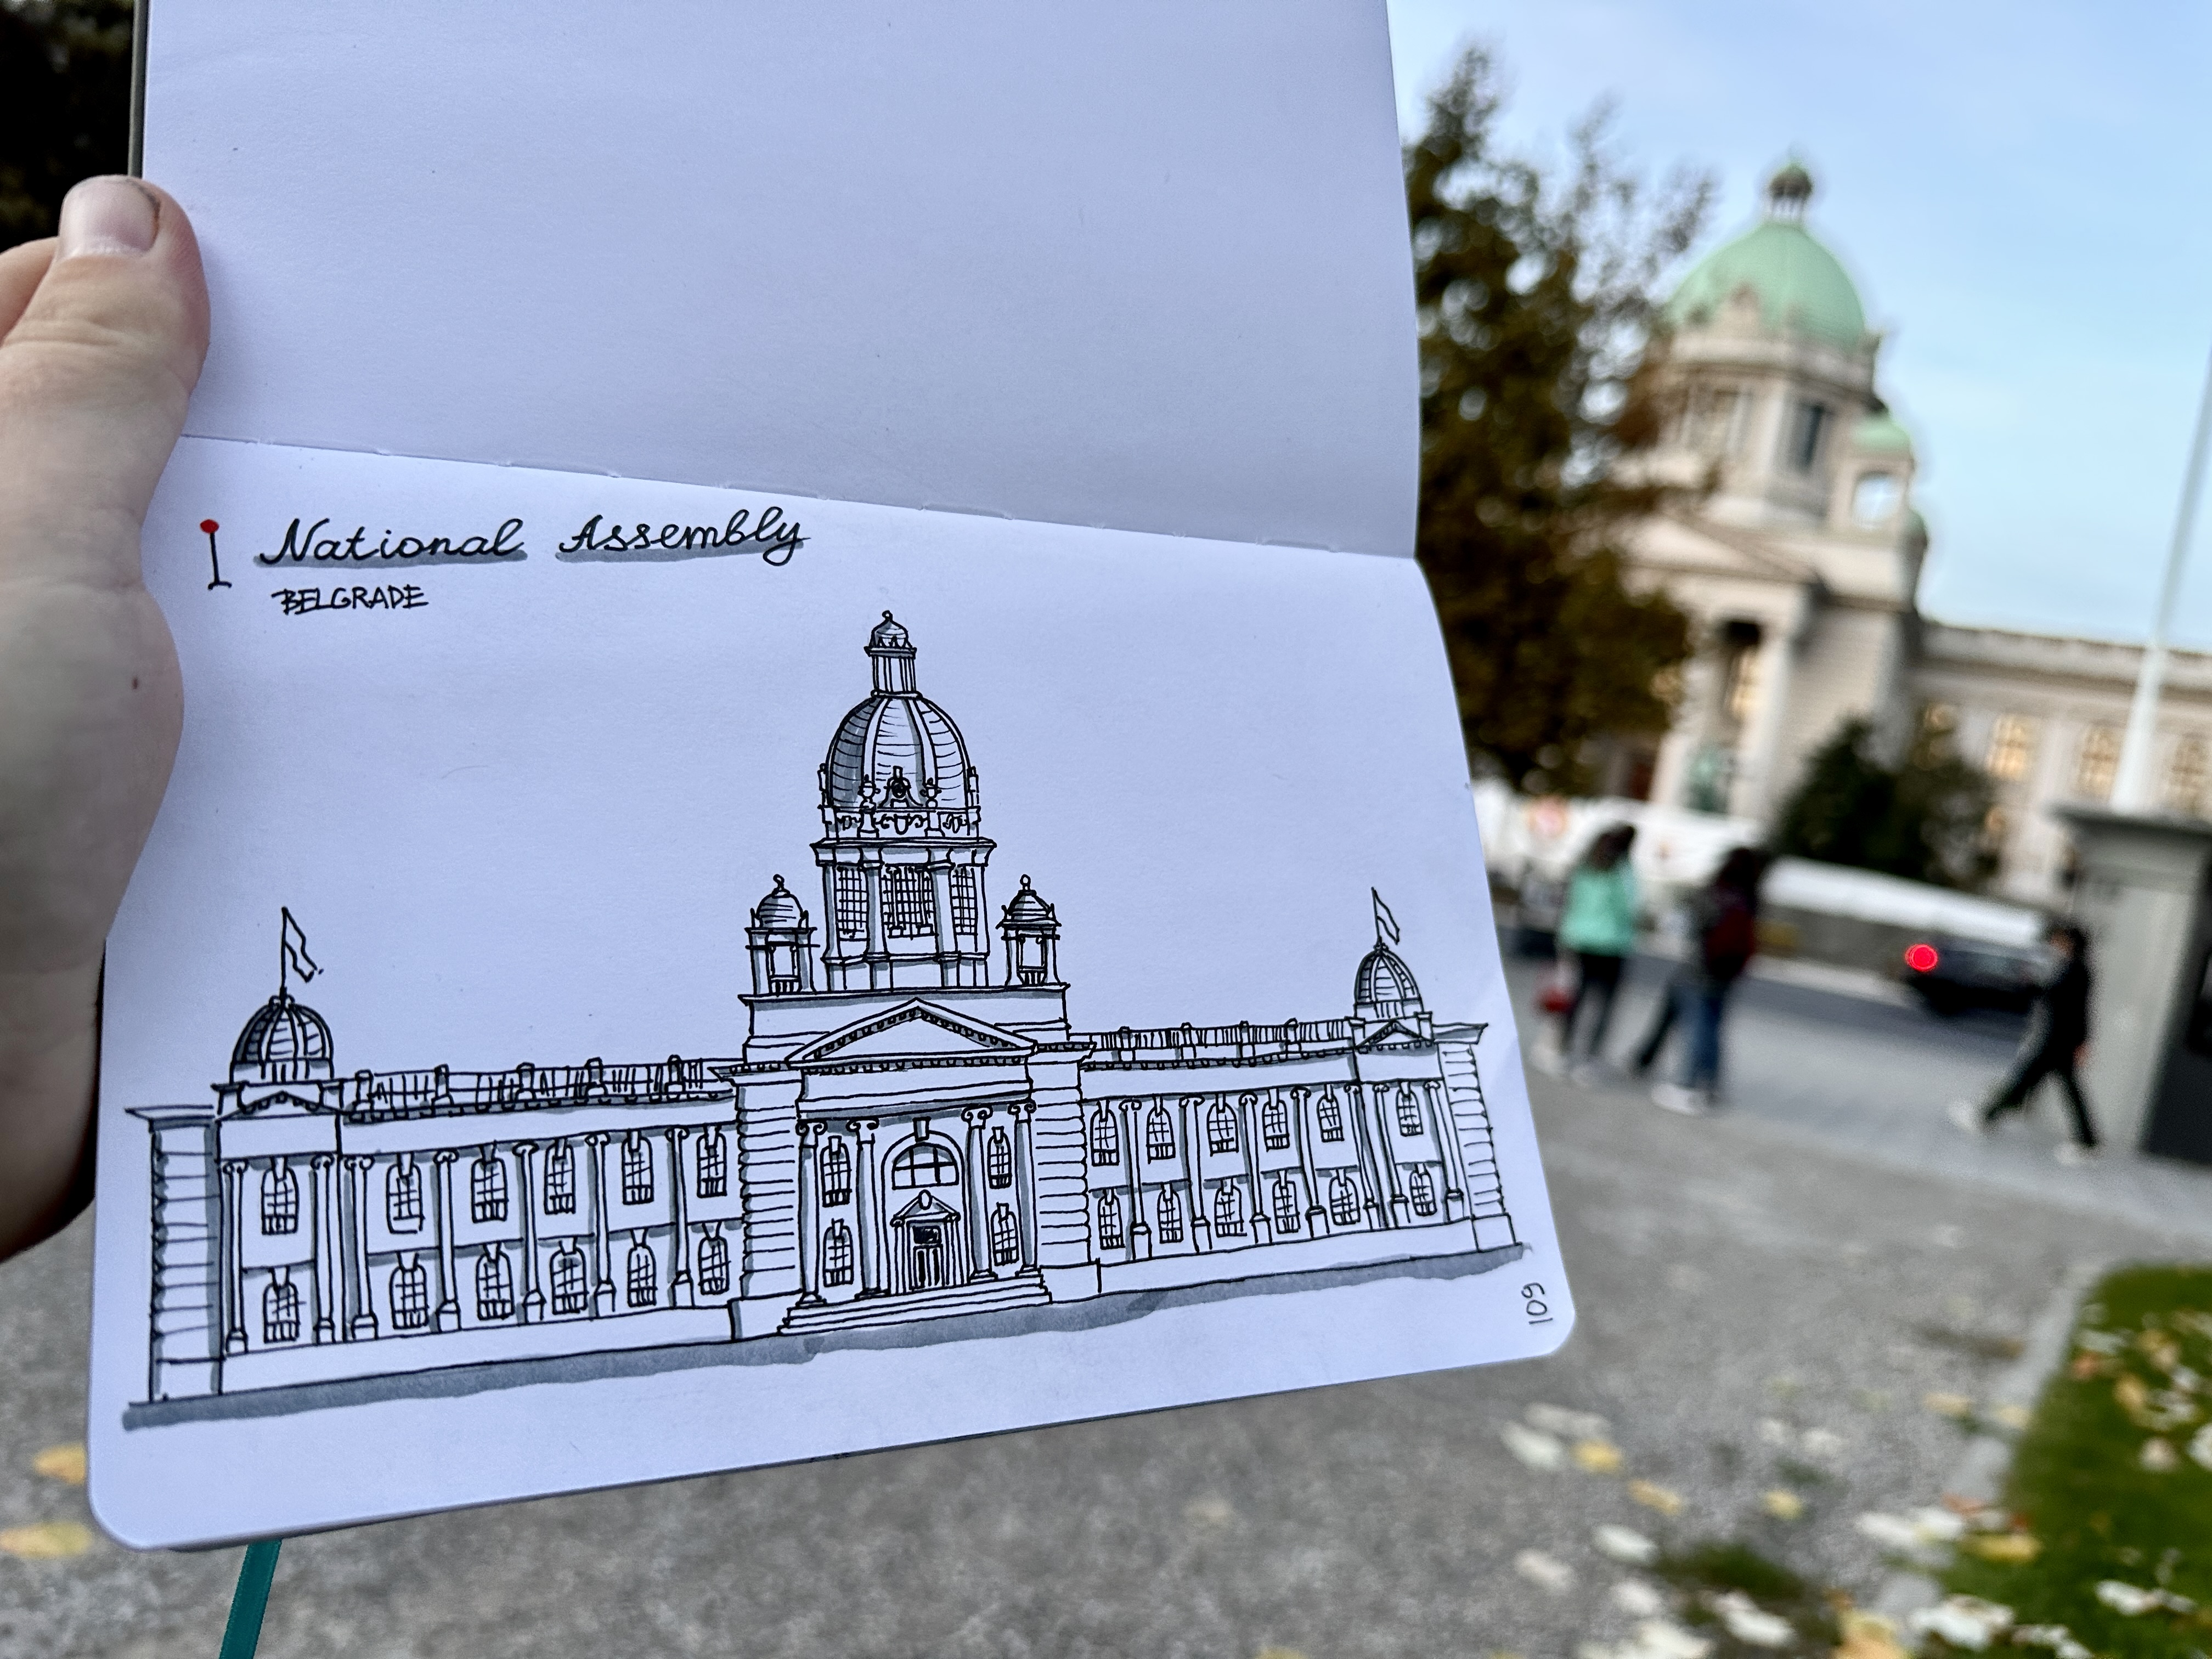 National Assembly
BELGRADE
109